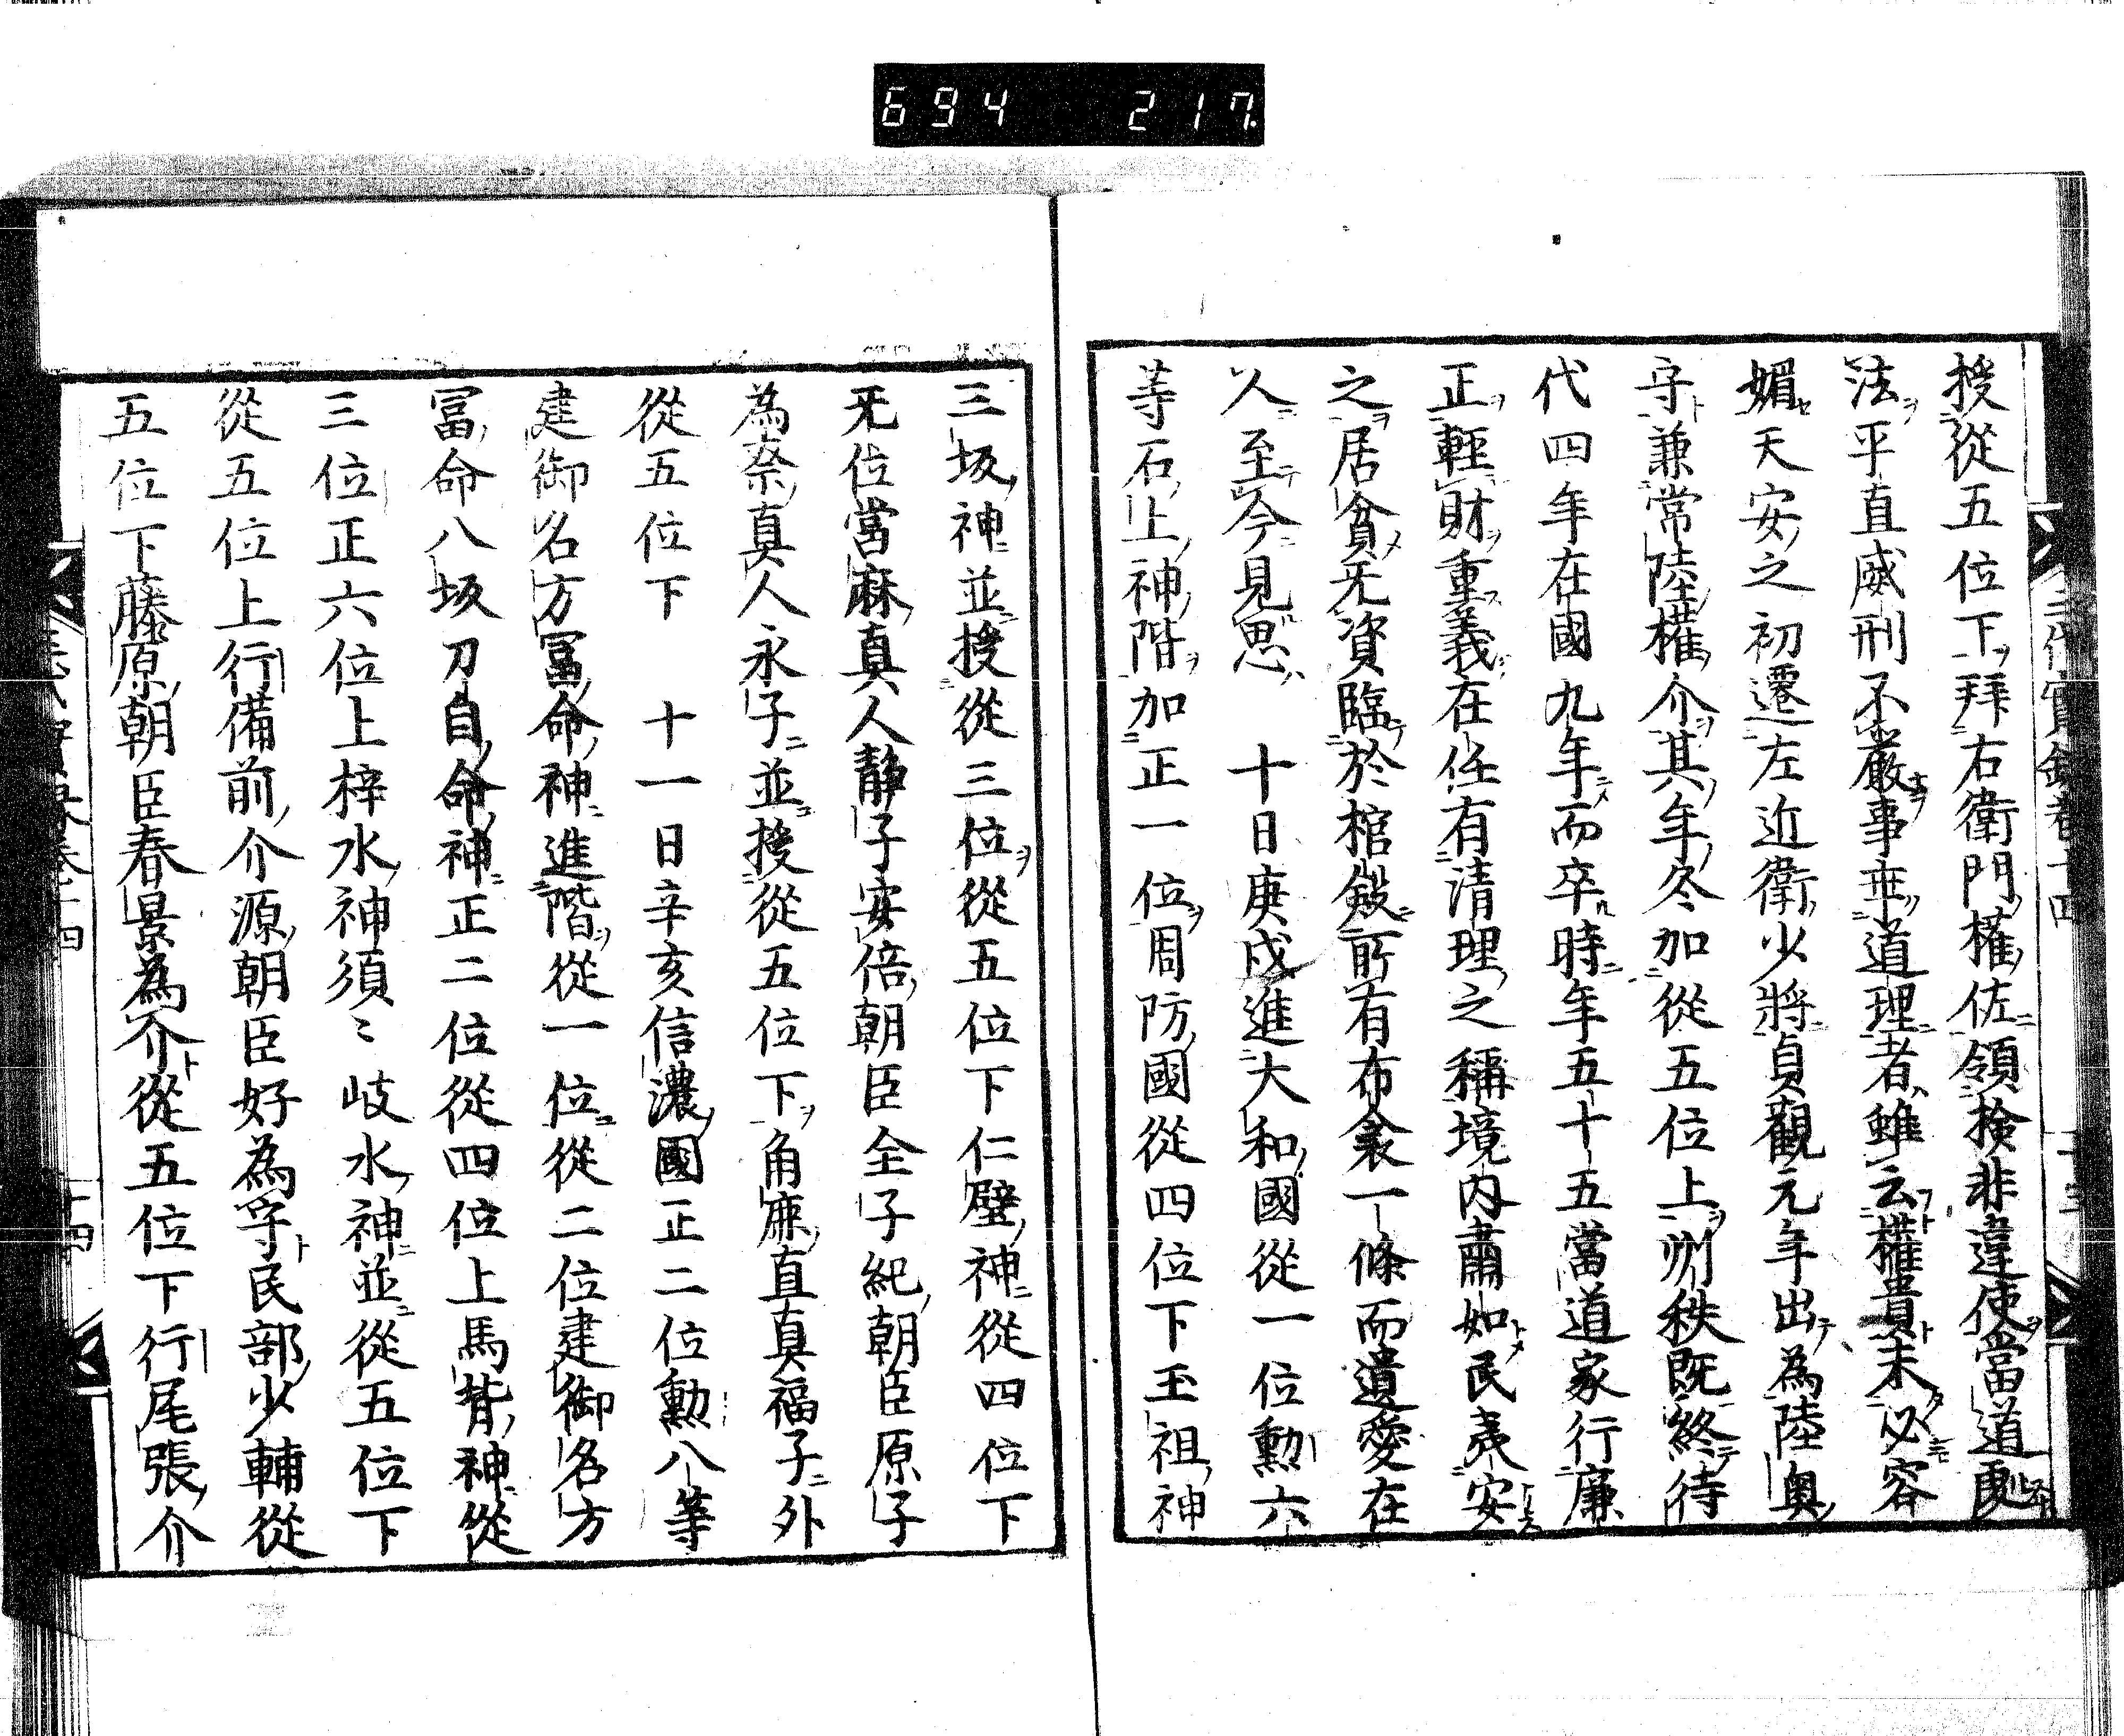 694 217
授從五位下拜右衛門權佐領檢非違使當道
法平直威刑不嚴事乖道理者雖云權貴未必容
媚天安之初遷左近衛少將貞觀元年出為陸奥
守兼常陸權介其年冬加從五位上州秩既終待
代四年在國九年而卒時年五十五當道家行廉
正輕財重義在任有清理之稱境内肅如民夷安
之居貧无資臨於棺斂所有布衾一條而遺愛在
人至今見思　十日庚戌進大和國從一位勳六
等石上神階加正一位周防國從四位下玉祖神
三坂神並授從三位從五位下仁壁神從四位下
无位當麻真人靜子安倍朝臣全子紀朝臣原子
為奈真人永子並授從五位下角廉直真福子外
從五位下　十一日辛亥信濃國正二位勳八等
建御名方富命神進階從一位從二位建御名方
冨命八坂刀自命神正二位從四位上馬背神從
三位正六位上梓水神須〻岐水神並從五位下
從五位上行備前介源朝臣好為守民部少輔從
五位下藤原朝臣春景為介從五位下行尾張介